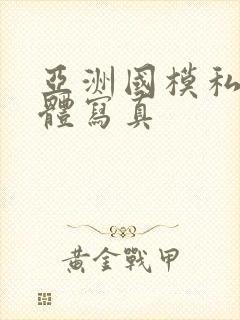 亞洲國模私
體寫真
黃金戰甲